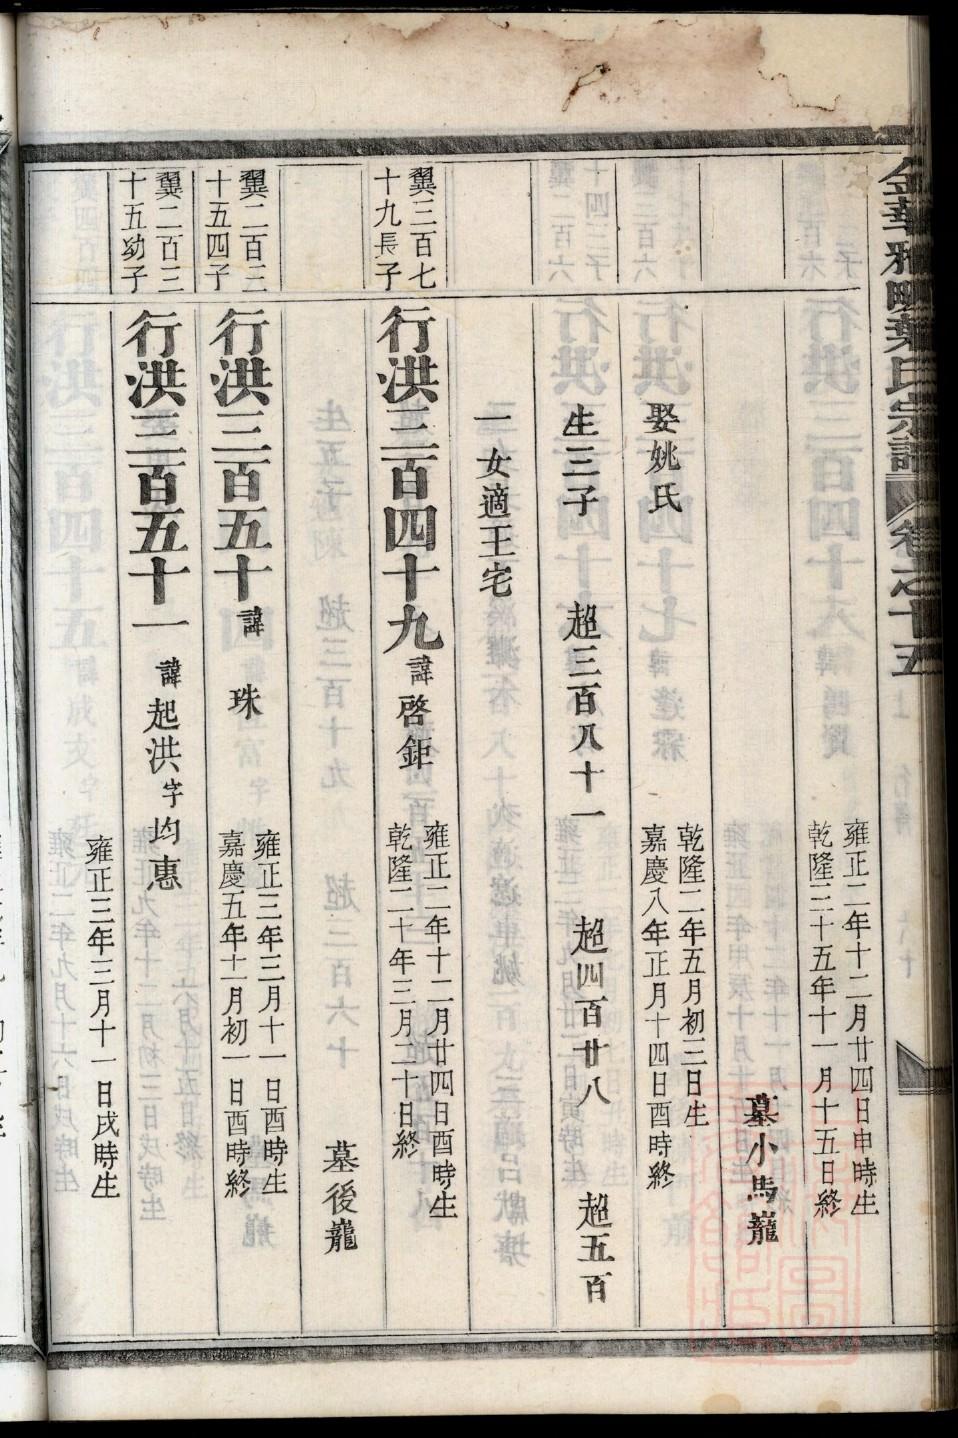 金華雅畈葉氏宗譜 卷之十五
雍正二年十二月廿四日申時生
乾隆三十五年十一月十五日終
墓小馬巃
娶姚氏
乾隆二年五月初三日生
嘉慶八年正月十四日酉時終
生三子 超三百八十一 超四百廿八 超五百
一女適王宅
翼三百七
十九長子
行洪三百四十九 諱啓鉅
雍正二年十二月廿四日酉時生
乾隆二十年三月二十日終
墓後巃
翼二百三
十五四子
行洪三百五十 諱珠
雍正三年三月十一日酉時生
嘉慶五年十一月初一日酉時終
翼二百三
十五幼子
行洪三百五十一 諱起洪字均惠
雍正三年三月十一日戌時生